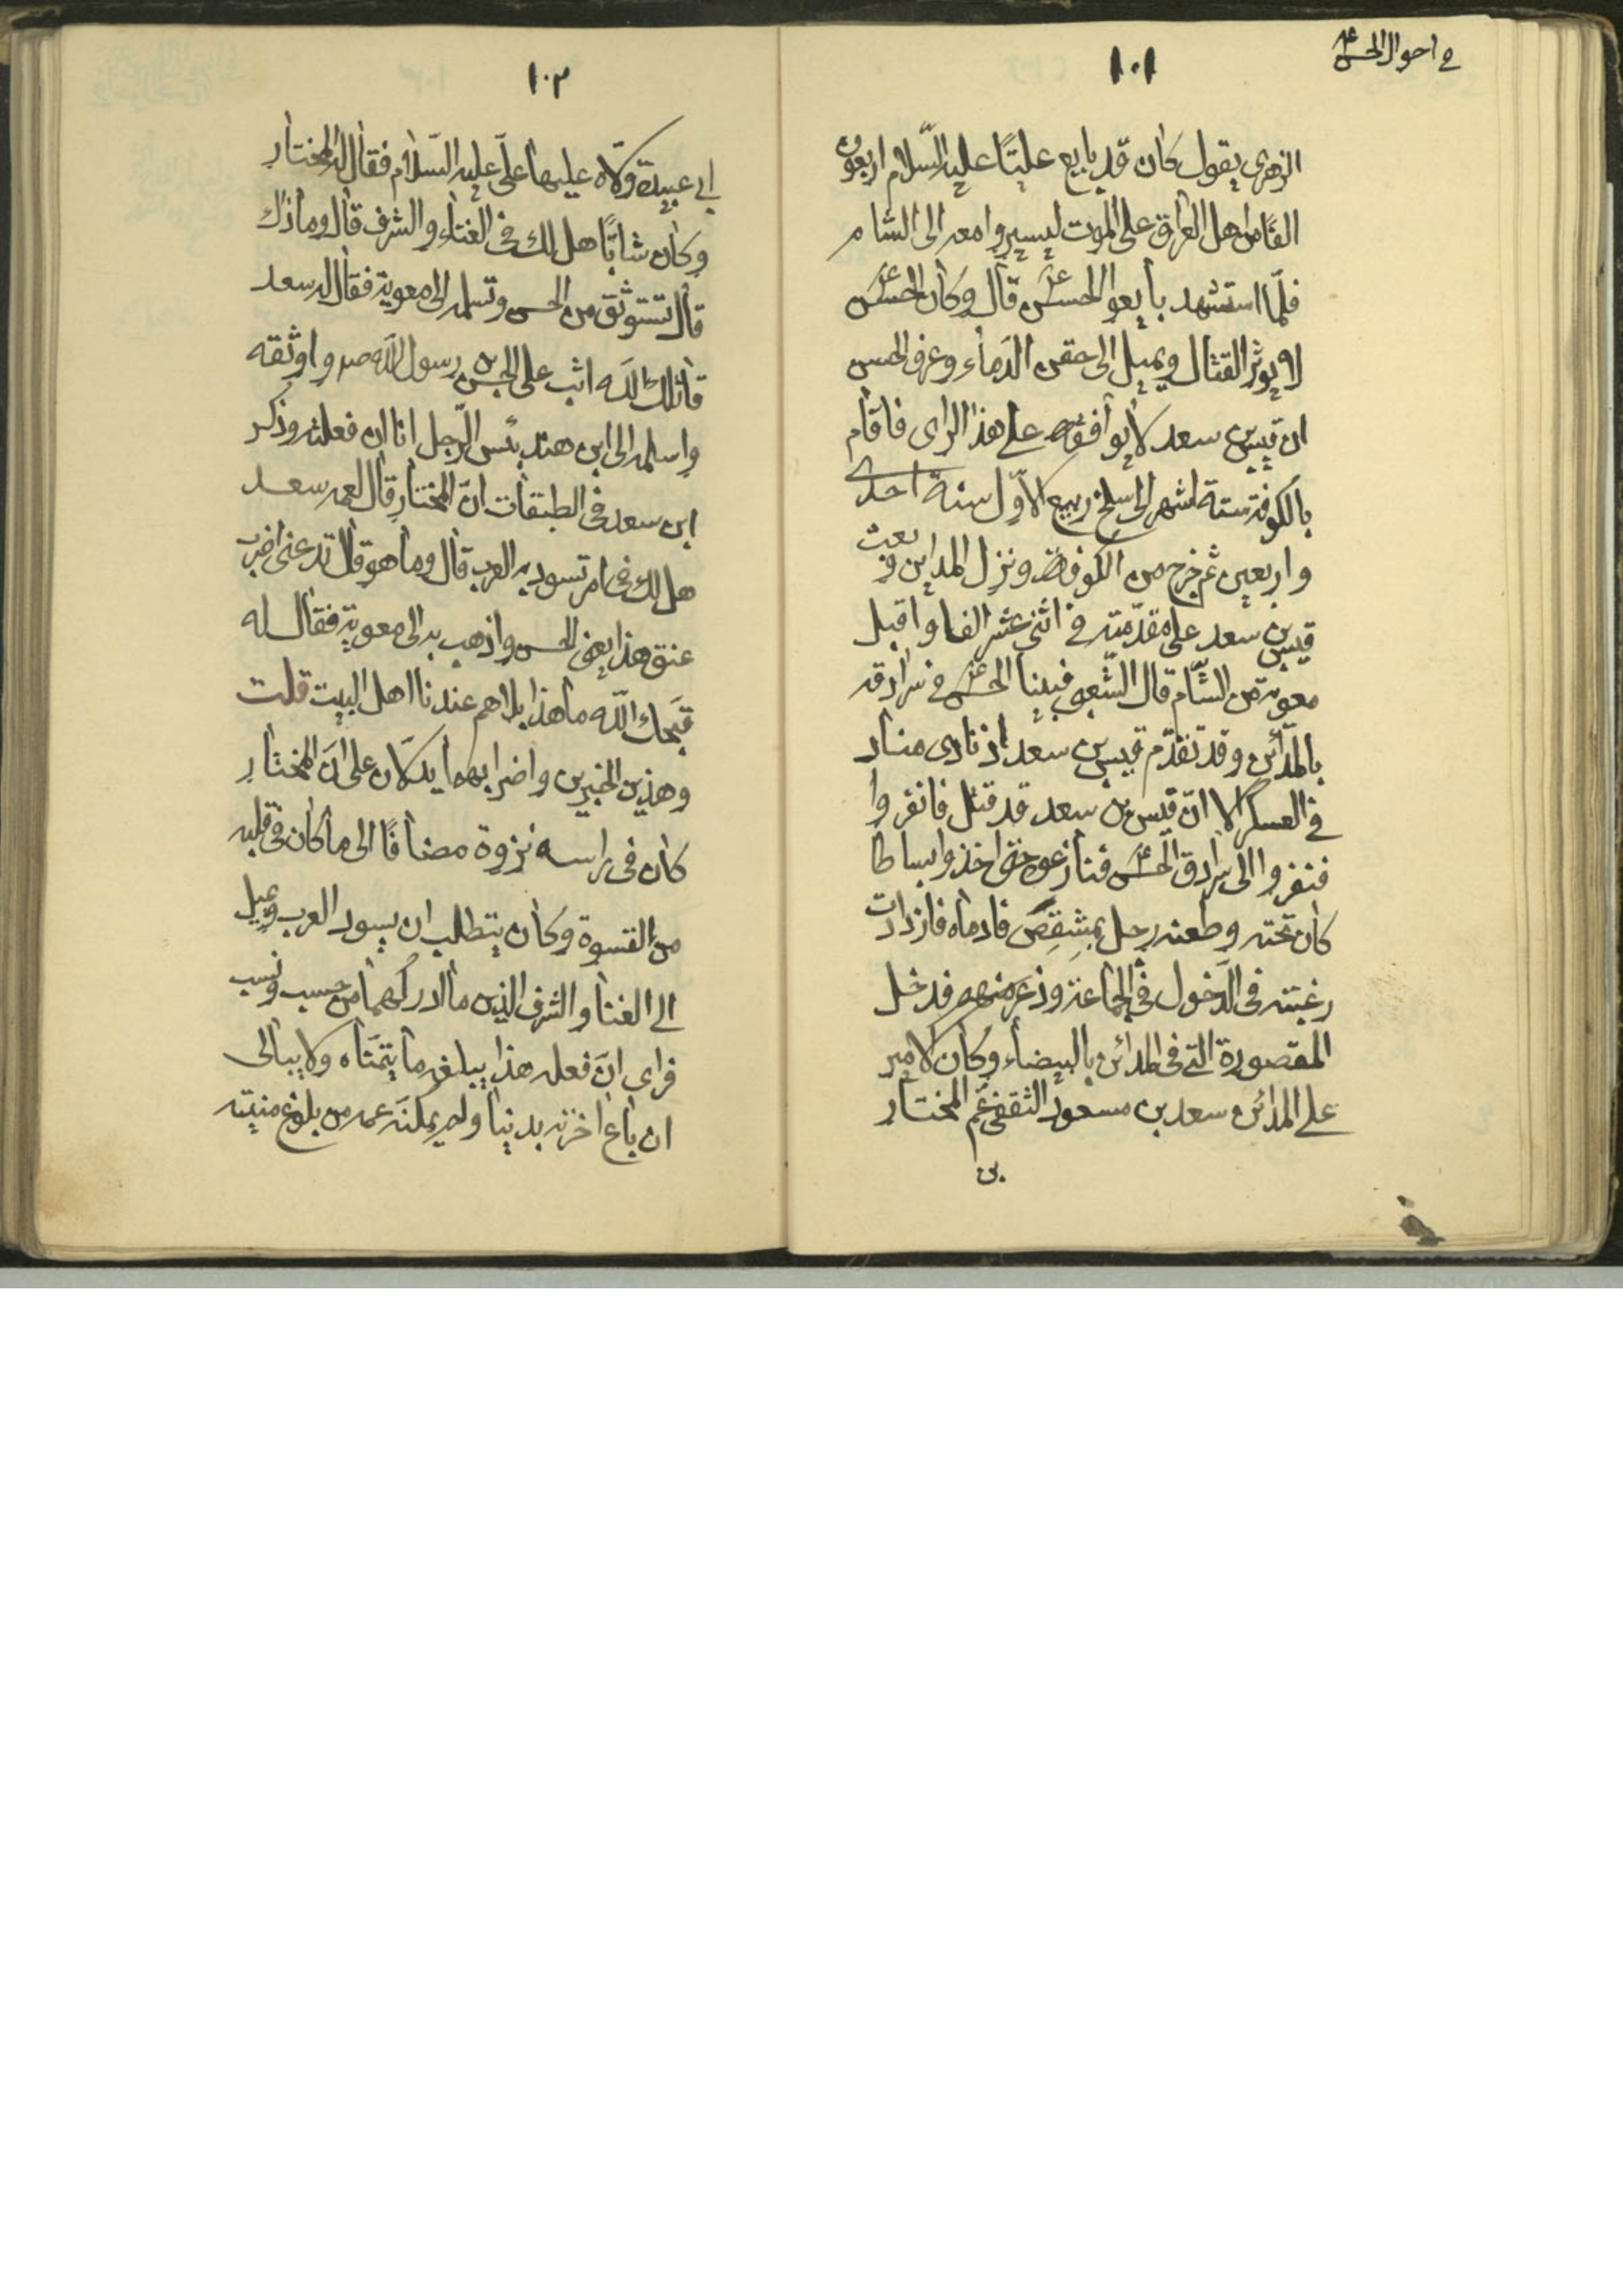 في احوال الحسن ع
١٠١
الزهرى يقول كان قد بايع عليًّا عليه السّلام اربعون
الفًا من اهل العراق على الموت ليسيروا معه الى الشام
فلمّا استشهد بايعوا الحسن ع قال وكان الحسن ع
لا يوثر القتال ويميل الى حقن الدّماء وعرف الحسن
ان قيس بن سعد لا يوافقه على هذا الراى فاقام
بالكوفة ستة اشهر الى سلخ ربيع الاوّل سنة احدى
واربعين ثم خرج من الكوفة ونزل المداين وبعث
قيس بن سعد على مقدّمته في اثنى عشر الفا واقبل
معوية من الشّام قال الشّعبى فبينا الحسن ع في سرادقه
بالمدائن وقد تقدّم قيس بن سعد اذ نادى مناد
في العسكر الا انّ قيس بن سعد قد قتل فانفروا
فنفروا الى سرادق الحسن ع فنازعوه حتى اخذوا بساطا
كان تحته وطعنه رجل بمِشقِصَ فادماه فازدادت
رغبته فى الدّخول في الجماعة وذعر منهم فدخل
المقصورة التى فى المدائن بالبيضاء وكان الامير
على المدائن سعد بن مسعود الثقفى عمّ المختار
بن
١٠٢
ابى عبيدة ولّاه عليها علىّ عليه السّلام فقال له المختار
وكان شابًّا هل لك فى الغناء والشرف قال وما ذاك
قال تستوثق من الحسن وتسلمه الى معوية فقال له سعد
قاتلك اللّه اثب على ابن رسول اللّه ص واوثقه
واسلمه الى ابن هند بئس الرّجل انا ان فعلته وذكر
ابن سعد فى الطبقات انّ المختار قال لعمه سعد
هل لك فى امر تسود به العرب قال وما هو قال تدعنى اضرب
عنق هذا يعنى الحسن واذهب به الى معوية فقال له
قبحك اللّه ما هذا بلاهم عندنا اهل البيت قلت
وهذين الخبرين واضرابهما يدلّان على انّ المختار
كان فى راسه نزوة مضافًا الى ما كان فى قلبه
من القسوة وكان يتطلب ان يسود العرب ويميل
الى الغنا والشرف الذين ما ادركهما من حسب ونسب
فراى انّ فعله هذا يبلغه ما يتمنّاه ولا يبالى
ان باع اخرته بدنيا ولم يمكنه عمه من بلوغ منيته